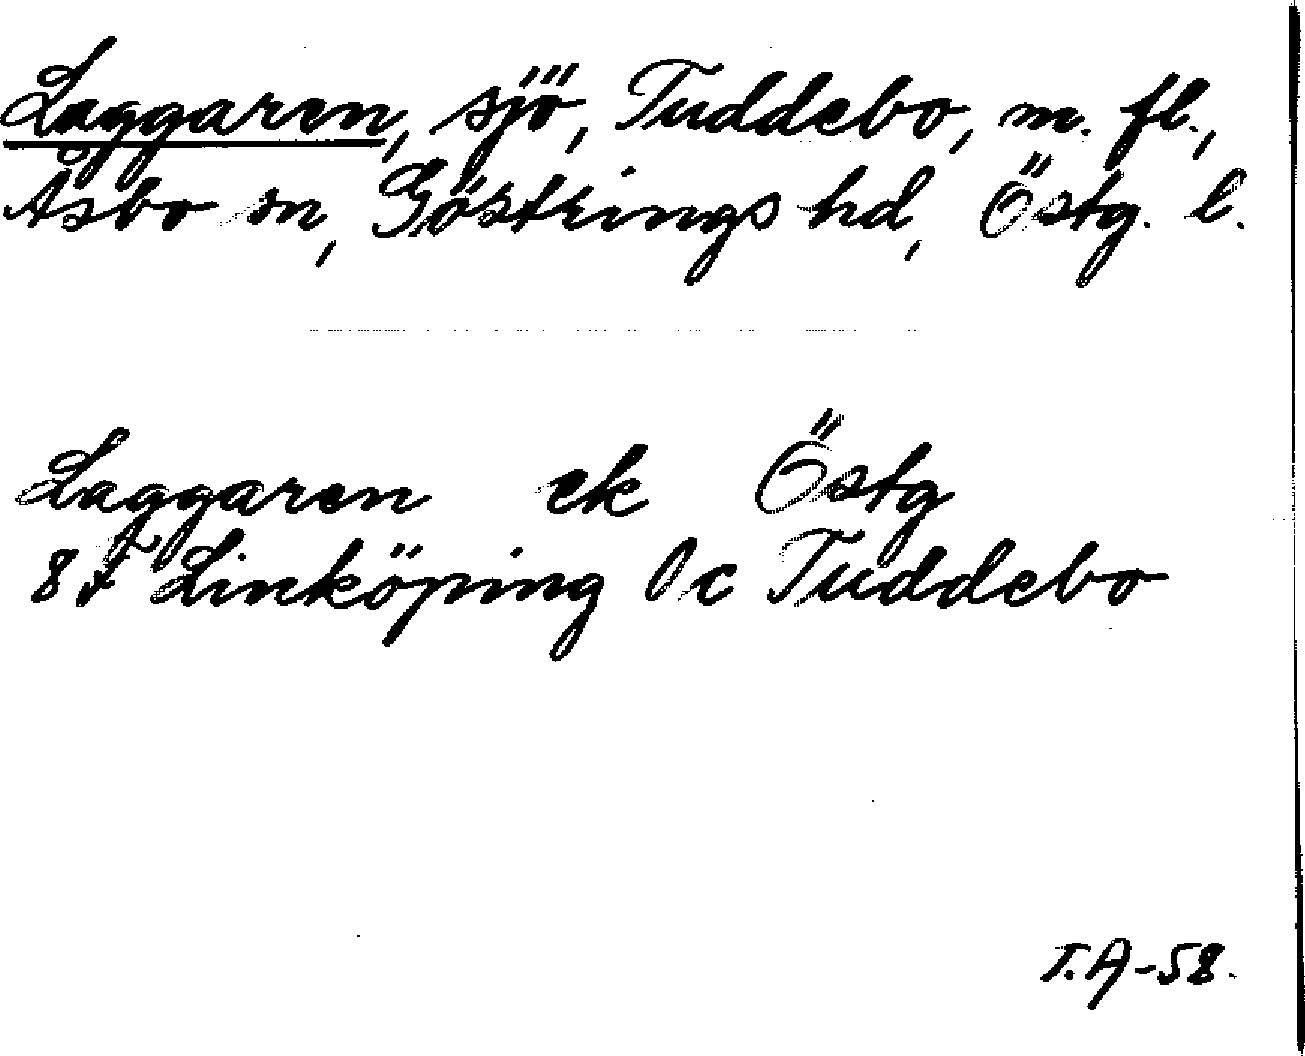 Laggaren, sjö, Tuddebo, m. fl.,
Åsbo sn, Göstrings hd, Östg. l.
Laggaren ek Östg
8F Linköping 0c Tuddebo
T.A-58.